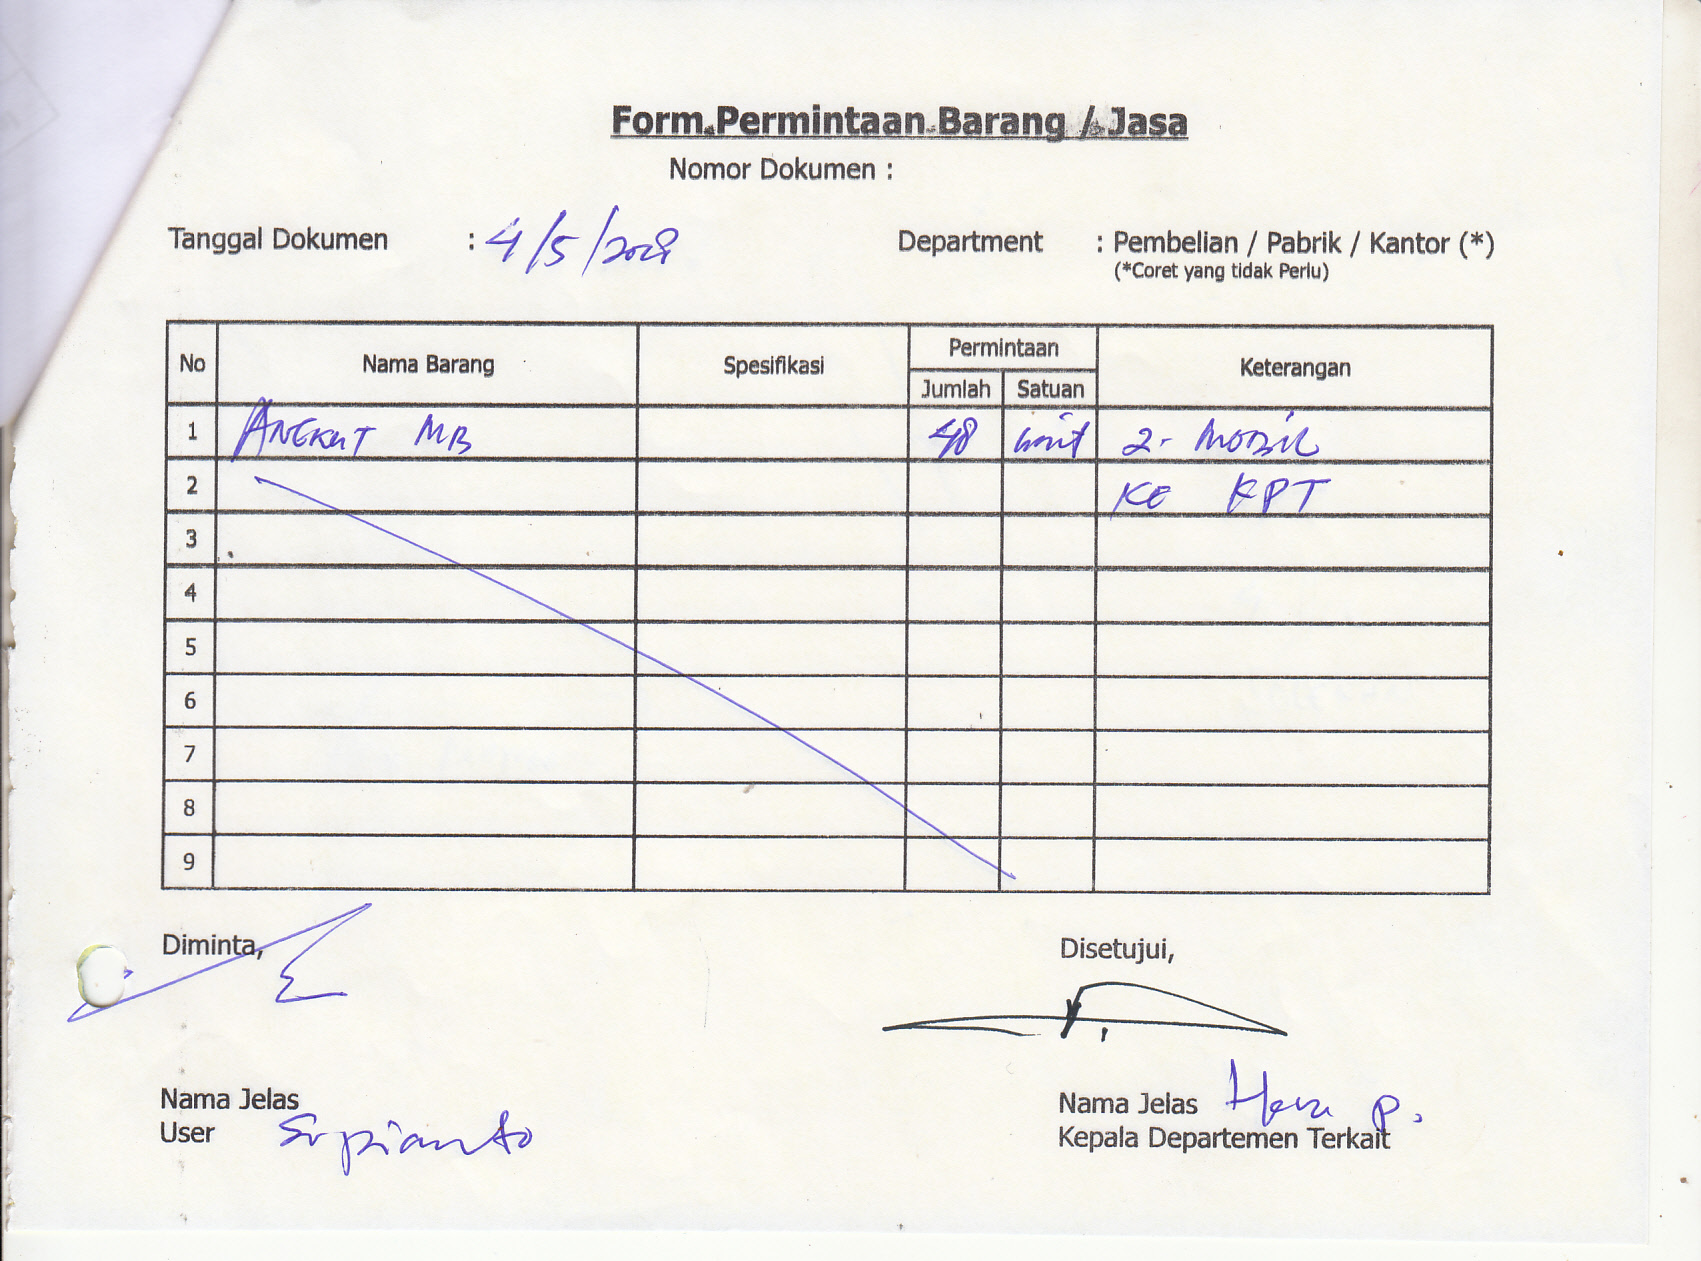 Form Permintaan Barang / Jasa
Nomor Dokumen :
Tanggal Dokumen : 4/5/
Department : Pembelian / Pabrik / Kantor (*)
(*Coret yang tidak Perlu)
No Nama Barang Spesifikasi Permintaan Keterangan
Jumlah Satuan
1 ANGKUT MB 48 unit 2- MOBIL
2 KE KPT
3
4
5
6
7
8
9
Diminta, Disetujui,
Nama Jelas
User Supianto
Nama Jelas P.
Kepala Departemen Terkait